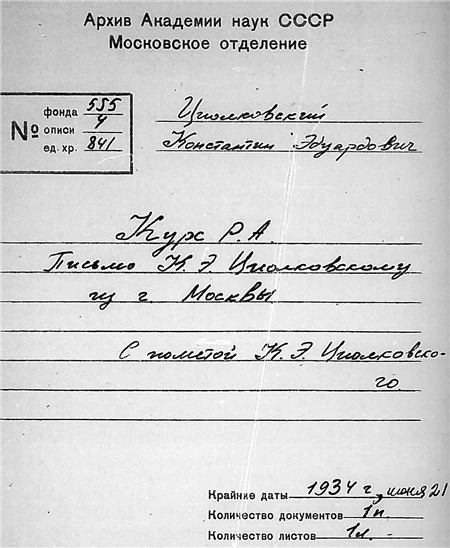 Архив Академии наук СССР
Московское отделение
№
фонда 555
описи 4
ед. хр. 841
Циолковский
Константин Эдуардович
Курс Р.А.
Письмо К.Э. Циолковскому
из г. Москвы
С пометой К.Э. Циолковско-
го.
Крайние даты 1934 г., июня 21
Количество документов 1п.
Количество листов 1л.